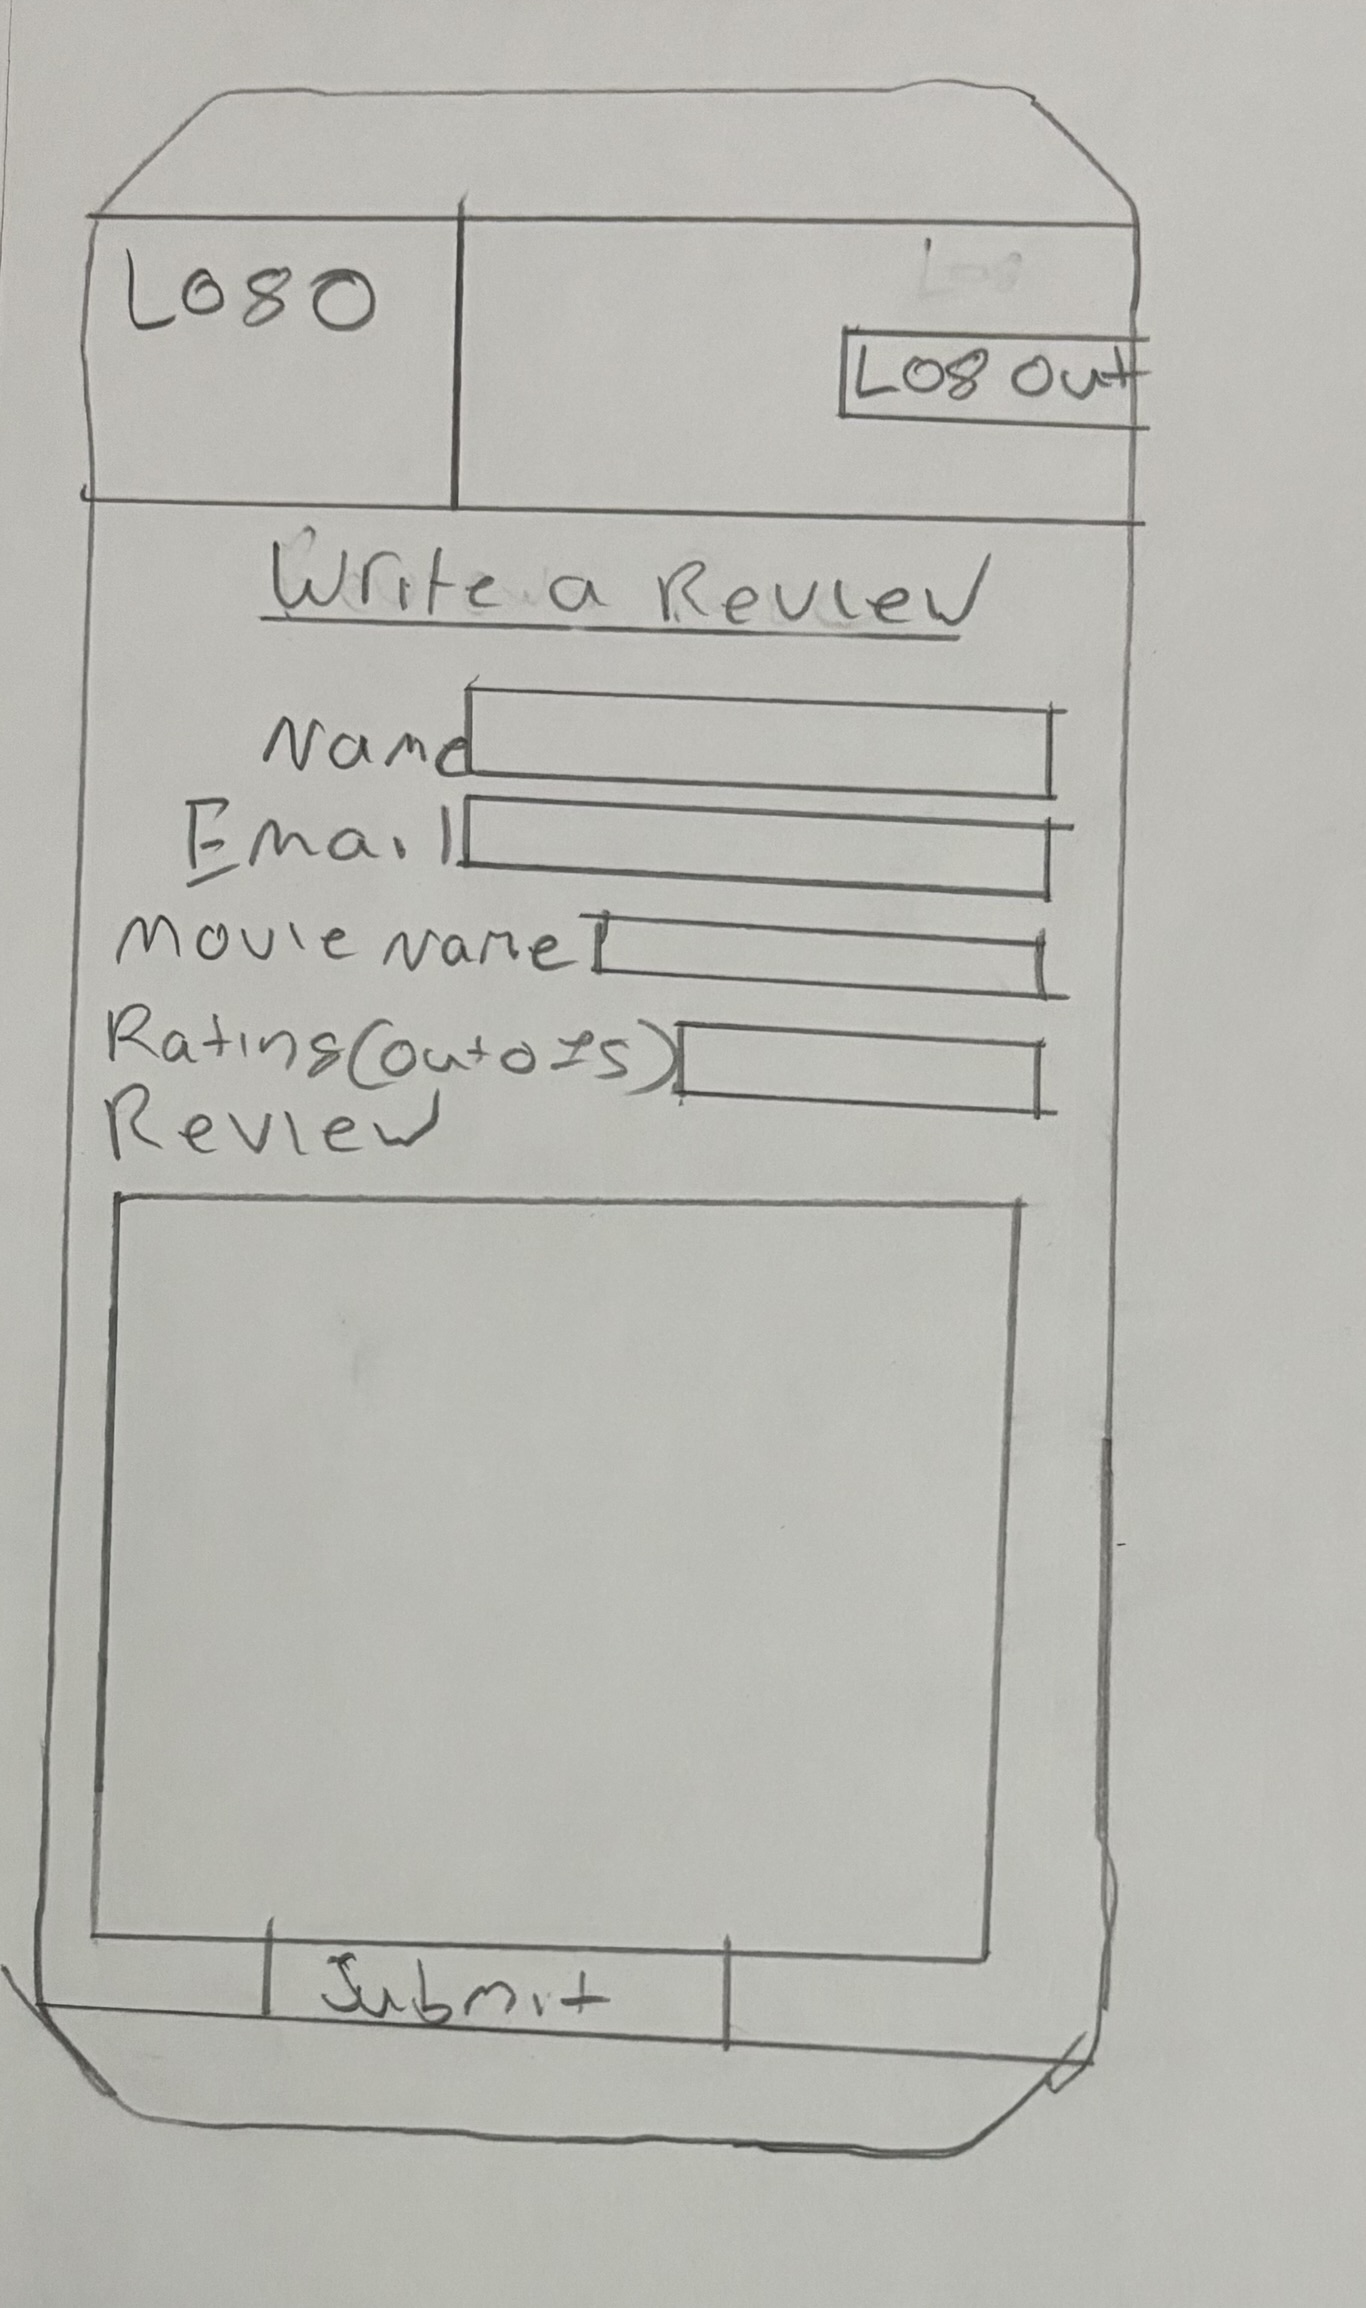 Logo
Log out
Write a Review
Name
Email
Movie Name
Rating(out of 5)
Review
Submit